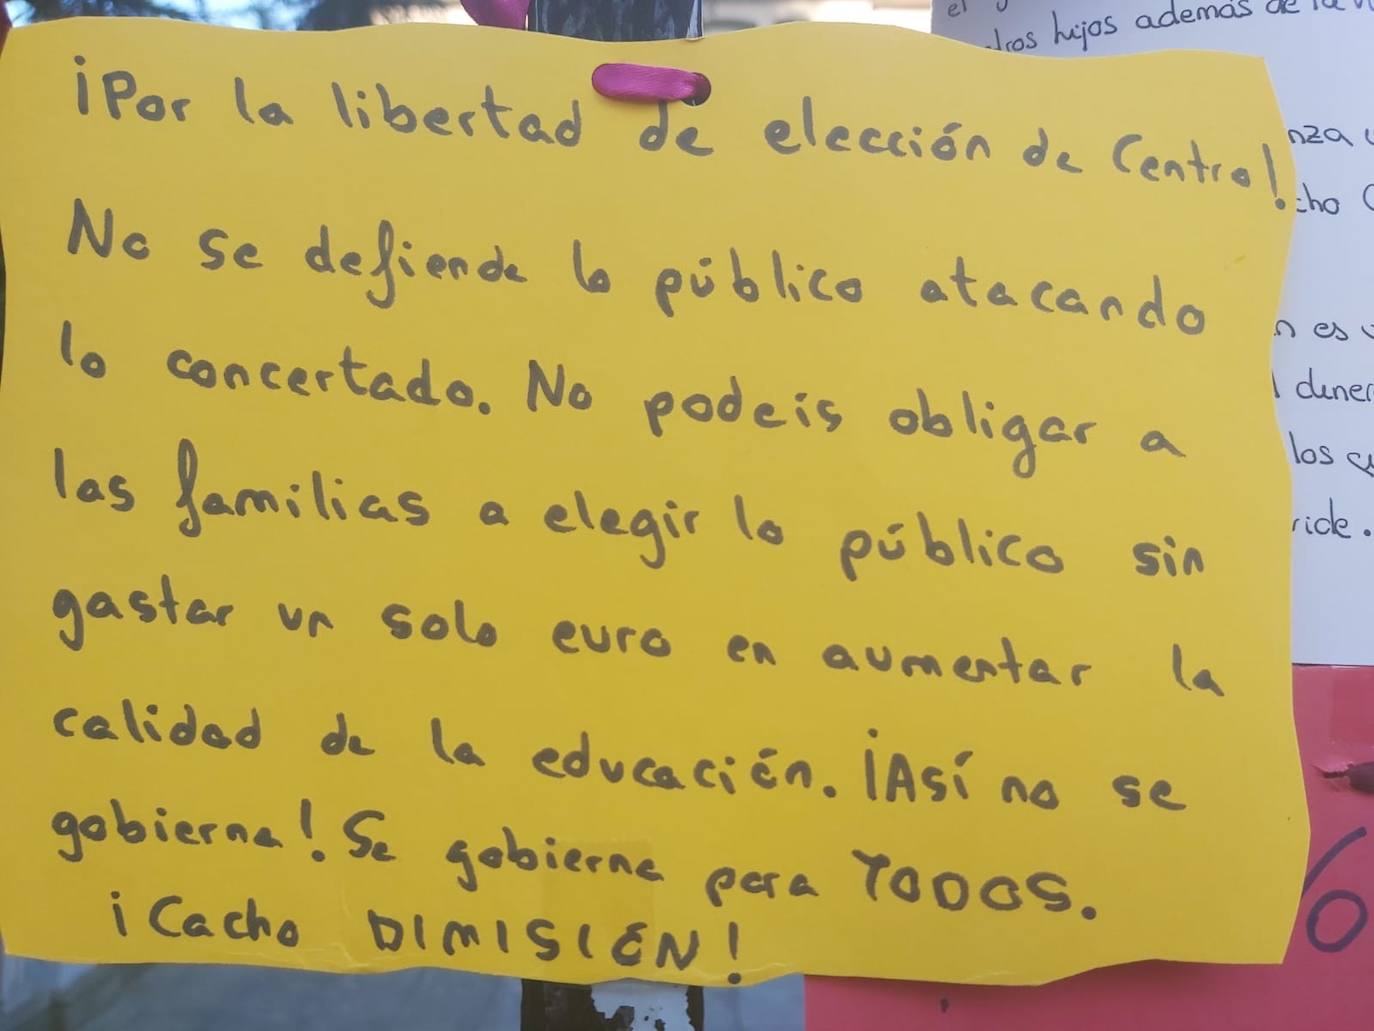 ¡Por la libertad de elección de Centro!
No se defiende lo público atacando
lo concertado. No podeís obligar a
las familias a elegir lo público sin
gastar un solo euro en aumentar la
calidad de la educación. ¡Así no se
gobierna! Se gobierna para TODOS.
¡Cacho DIMISIÓN!
el
hijos además de la
es
los